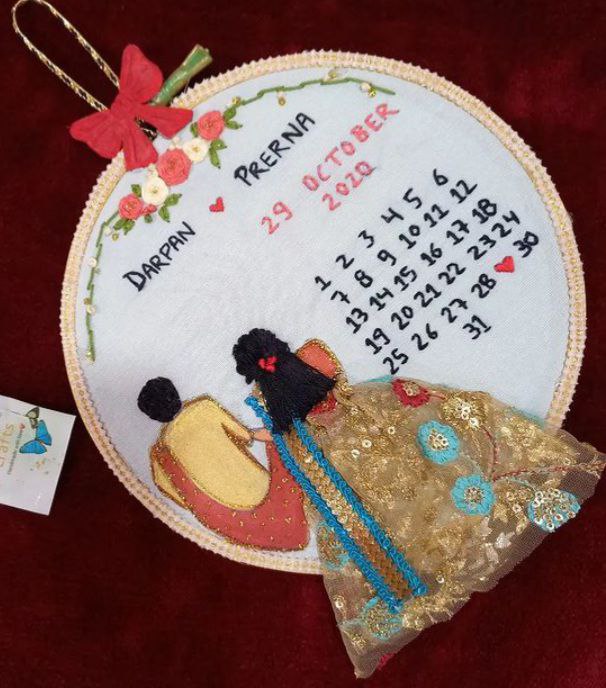 DARPAN ♥ PRERNA
29 OCTOBER
2020
1 2 3 4 5 6
7 8 9 10 11 12
13 14 15 16 17 18
19 20 21 22 23 24
25 26 27 28 ♥ 30
31
crafts